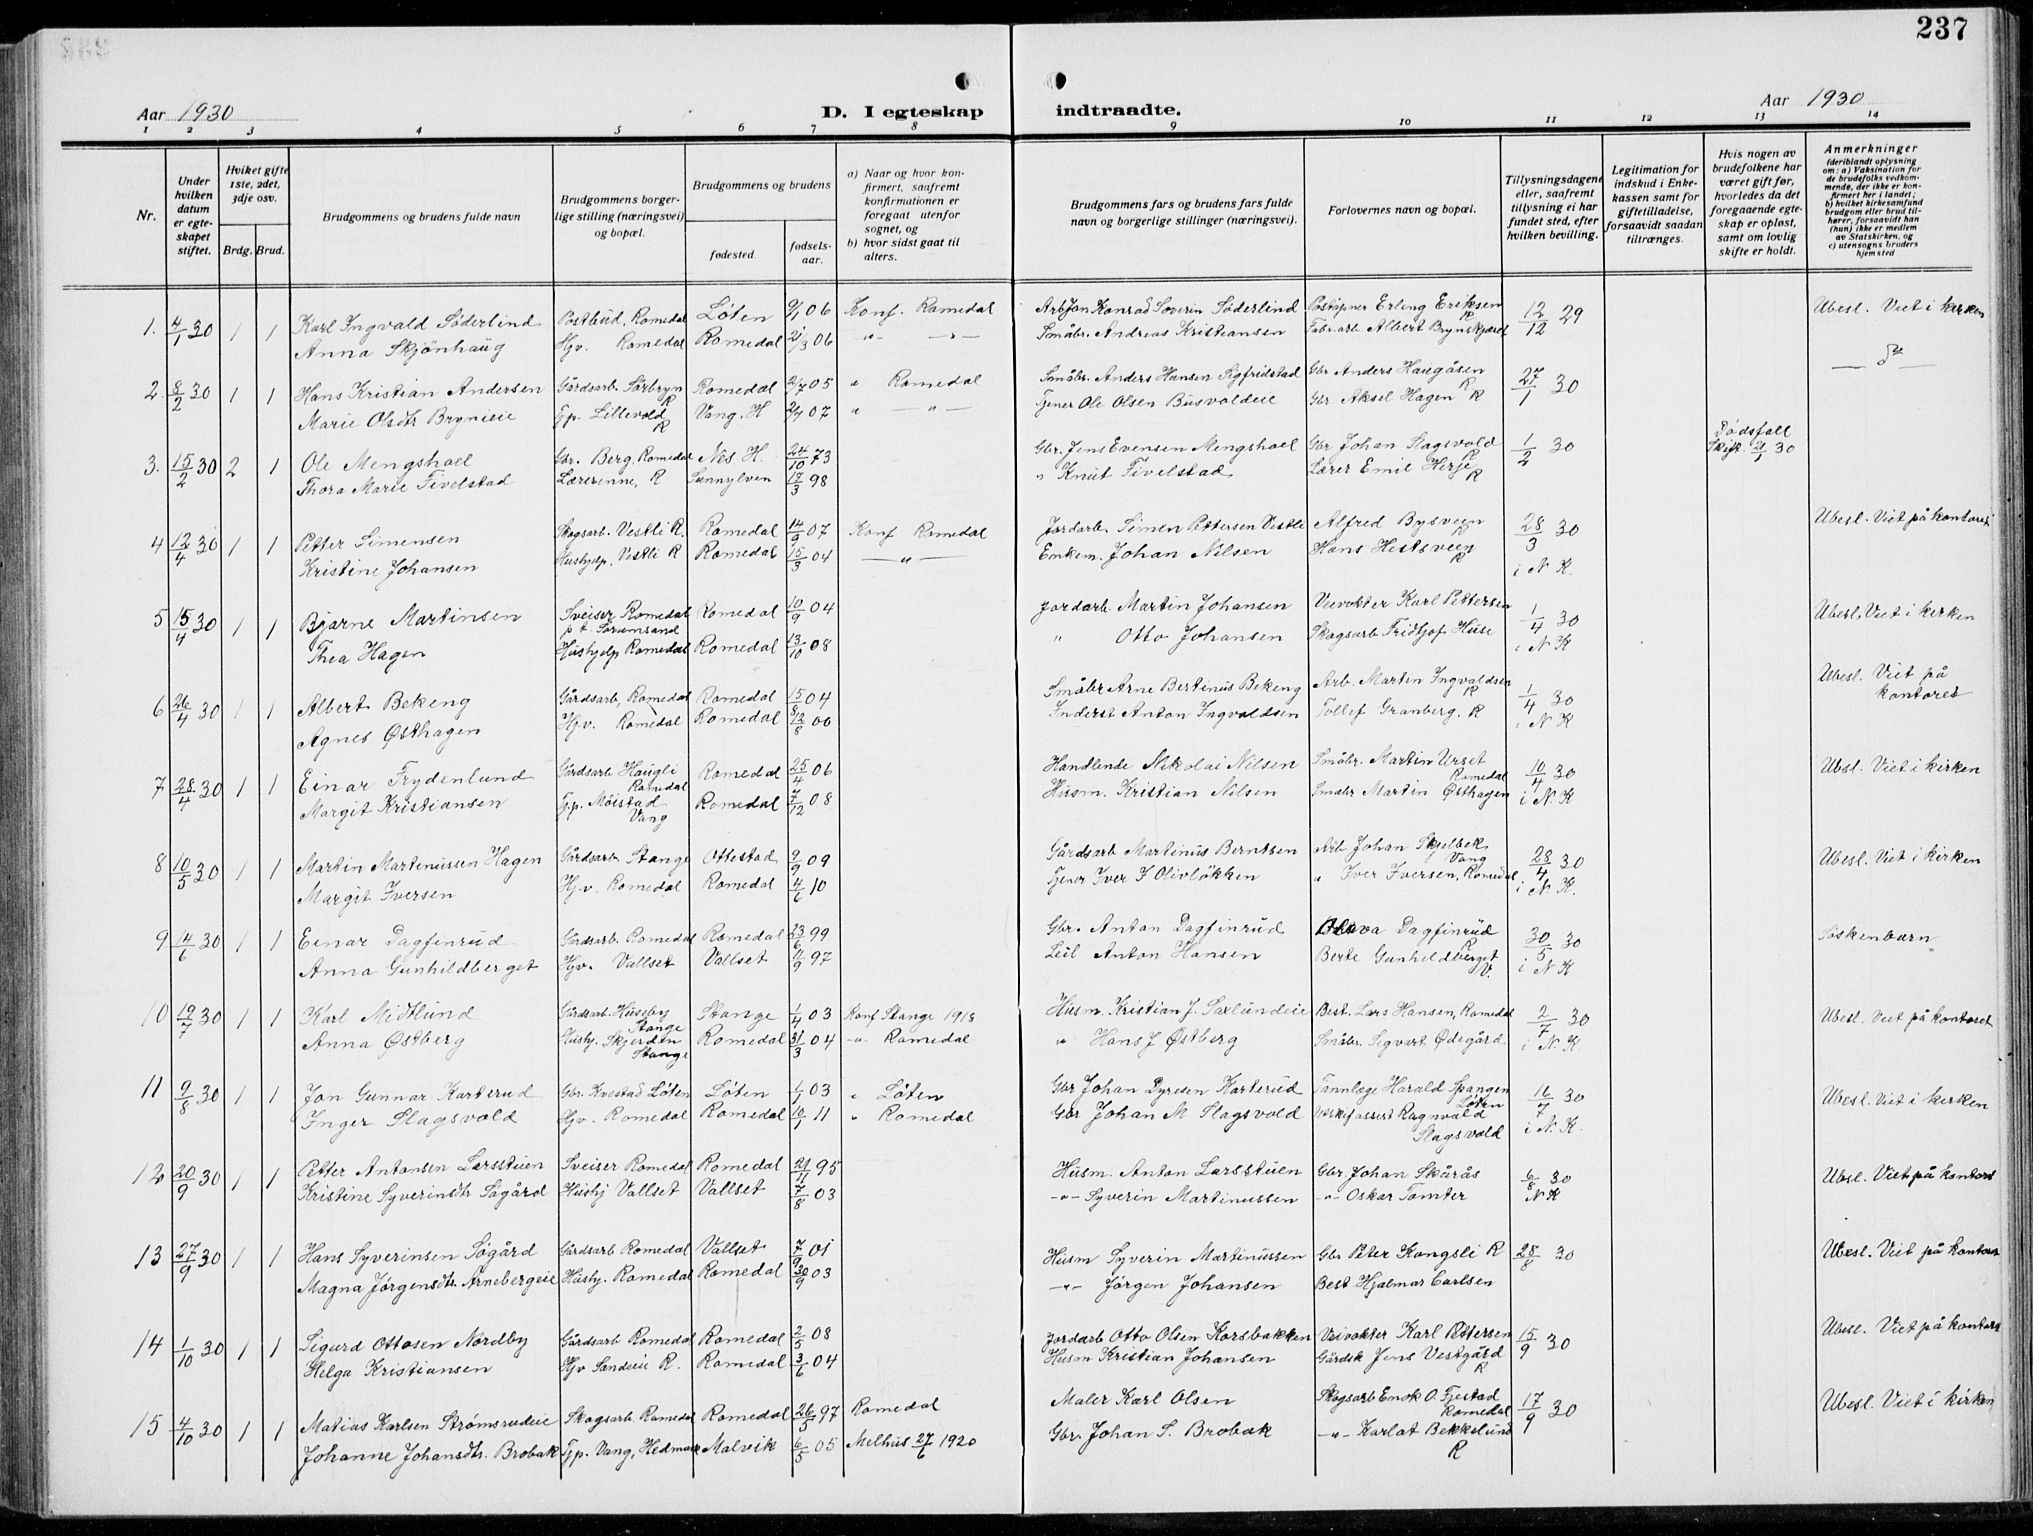 237
Aar 1930
D. I egteskap indtraadte.
Aar 1930
1 2 3 4 5 6 7 8 9 10 11 12 13 14
Nr.
Under hvilken datum er egte-skapet stiftet.
Hviket gifte 1ste, 2det, 3dje osv.
Brdg. Brud.
Brudgommens og brudens fulde navn
Brudgommens borger-lige stilling (næringsvei) og bopæl.
Brudgommens og brudens
fødested. fødsels-aar.
a) Naar og hvor kon-firmert, saafremt konfirmationen er foregaat utenfor sognet, og
b) hvor sidst gaat til alters.
Brudgommens fars og brudens fars fulde navn og borgerlige stillinger (næringsvei).
Forlovernes navn og bopæl.
Tillysningsdagene eller, saafremt tillysning ei har fundet sted, efter hvilken bevilling.
Legitimation for indskud i Enke-kassen samt for giftetilladelse, forsaavidt saadan tiltrænges.
Hvis nogen av brudefolkene har været gift før, hvorledes da det foregaaende egte-skap er opløst, samt om lovlig skifte er holdt.
Anmerkninger (deriblandt oplysning om: a) Vaksination for de brudefolks vedkom-mende, der ikke er kon-firmert her i landet; b) hvilket kirkesamfund brudgom eller brud til-hører, forsaavidt han (hun) ikke er medlem av Statskirken, og c) utensogns bruders hjemsted
1. 4/1 30 1 1 Karl Ingvald Söderlind Postbud, Romedal Löten 9/1 06 Konf. Romedal Arb Jon Konrad Soverin Söderlind Poståpner Erling Eriksen R 12/12 29 Ubesl. Viet i kirken
Anna Skjönhaug Hjv. Romedal Romedal 21/3 06 -"- -"- Småbr. Andreas Kristiansen Fabr. arb Albert Brynskjæret
2. 8/2 30 1 1 Hans Kristian Andersen Gårdsarb. Sörbryn R Romedal 2/7 05 " Romedal Småbr. Anders Hansen Sigfridstad Gbr Anders Haugåsen R 27/1 30 — do —
Marie Olsdtr Brynieie Tjp. Lillevold R Vang. H 2/7 07 " — " — Tjener Ole Olsen Busvoldeie Gbr. Aksel Hagen R
3. 15/2 30 2 1 Ole Mengshoel Gbr. Berg, Romedal Nes H. 24/10 73 Gbr. Jens Evensen Mengshoel Gbr Johan Slagsvold R 1/2 30 Dödsfall Skift 21/1 30
Thora Marie Fivelstad Lærerinne, R Sunnylven 17/3 98 " Knut Fivelstad Lærer Emil Herje R
4 12/4 30 1 1 Petter Simensen Skogsarb. Vestli R. Romedal 14/9 07 Konf Romedal Jordarb. Simen Pettersen Vestli Alfred Bysveen R 28/3 30 Ubesl. Viet på kontoret
Kristine Johansen Hushjelp, Vestli R Romedal 15/3 04 — " — Enkem. Johan Nilsen Hans Hestsveen R i N. K.
5 15/4 30 1 1 Bjarne Martinsen Sveiser Romedal p t Sørumsand Romedal 10/9 04 Jordarb. Martin Johansen Veivokter Karl Pettersen 1/4 30 Ubesl. Viet i kirken
Thea Hagen Hushjelp Romedal Romedal 13/10 08 " Otto Johansen Skogsarb Fridtjof Huse i N K
6 26/4 30 1 1 Albert Bekeng Gårdsarb, Romedal Romedal 15/8 04 Småbr Arne Bertinus Bekeng Arb. Martin Ingvaldsen R 1/4 30 Ubesl. Viet på kontoret
Agnes Østhagen Hjv. Romedal Romedal 12/8 00 Inderst Anton Ingvaldsen Tollef Granberg. R i N. K
7 28/4 30 1 1 Einar Frydenlund Gårdsarb. Haugli Romedal Romedal 25/4 06 Handlende Nikolai Nilsen Småbr. Martin Urset Romedal 10/4 30 Ubsl. Viet i kirken
Margit Kristiansen Tjp. Möistad Vang Romedal 7/12 08 Husm. Kristian Nilsen Småbr Martin Østhagen i N. K
8 10/5 30 1 1 Martin Martinussen Hagen Gårdsarb. Stange Ottestad 9/9 09 Gårdsarb Martinus Berntsen Arb Johan Skjelbek Vang 28/4 30 Ubesl. Viet i kirken
Margit Iversen Hjv. Romedal Romedal 4/6 10 Tjener Iver I Olivløkken " Iver Iversen, Romedal i N. K.
9 14/6 30 1 1 Einar Dagfinrud Gårdsarb. Romedal Romedal 23/6 99 Gbr. Anton Dagfinrud Olava Dagfinrud R 30/5 30 Söskenbarn
Anna Gunhildberget Hjv. Vallset Vallset 11/9 97 Leil Anton Hansen Berte Gunhildberget V. i N. K
10 19/7 30 1 1 Karl Midtlund Gårdsarb. Huseby Stange Stange 1/4 03 Konf Stange 1918 Husm. Kristian J. Saxlundeie Best. Lars Hansen, Romedal 2/7 30 Ubesl. Viet på kontoret
Anna Østberg Hushj. Skjerden Stange Romedal 31/3 04 -"- Romedal " Hans J Østberg Småbr. Sigvart Ødegård i N. K
11 9/8 30 1 1 Jon Gunnar Karterud Gbr. Kvestad Löten Löten 1/1 03 " Löten Gbr Johan Dyresen Karterud Tannlæge Harald Spangen Löten 16/7 30 Ubesl. Viet i kirken
Inger Slagsvold Hjv. Romedal Romedal 10/1 11 " Romedal Gbr Johan M Slagsvold Ragnvald Slagsvold i N. K.
12 20/9 30 1 1 Petter Antonsen Larsstuen Sveiser Romedal Romedal 21/11 95 Husm. Anton Larsstuen Gbr. Johan Skårås 6/8 30 Ubesl. Viet på kontoret
Kristine Syverinsdtr Sögård Hushj Vallset Vallset 7/8 03 -"- Syverin Martinussen -"- Oskar Tomter N K
13 27/9 30 1 1 Hans Syverinsen Sögård Gårdsarb Romedal Vallset 7/9 01 Husm Syverin Martinussen Gbr Peter Kongsli R 28/8 30 Ubesl. Viet på kontoret
Magna Jörgensdtr. Arnebergeie Hushj. Romedal Romedal 30/9 03 -"- Jörgen Johansen Best Hjalmar Carlsen
14 1/10 30 1 1 Sigurd Ottosen Nordby Gårdsarb Romedal Romedal 2/5 08 Jordarb Otto Olsen Korsbakken Veivokter Karl Pettersen 15/9 30 Ubesl. Viet på kontoret
Helga Kristiansen Hjv Sandeie R. Romedal 3/6 04 Husm Kristian Johansen Gårdsk Jens Vestgård R
15 4/10 30 1 1 Matias Karlsen Strömsrudeie Skogsarb Romedal Romedal 26/5 97 Romedal Maler Karl Olsen Skogsarb Enok O. Fjestad Romedal 17/9 30 Ubesl. Viet i kirken
Johanne Johansdtr. Brobak Tjp. Vang, Hedmark Malvik 6/5 05 Melhus 27/6 1920 Gbr. Johan S. Brobak -"- Karlot Bekkelund R